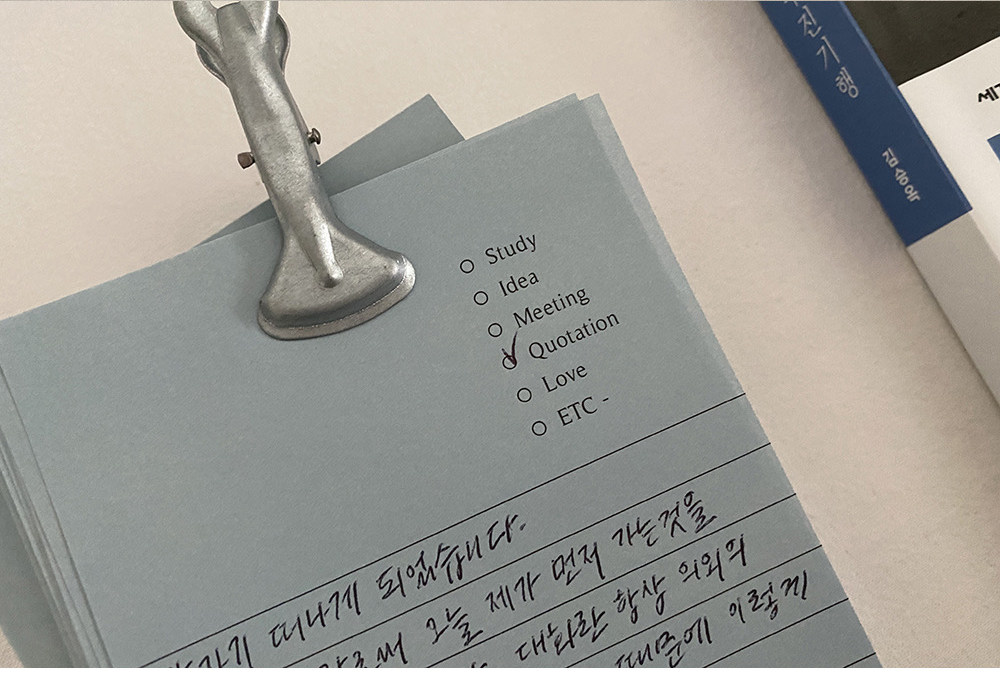 Study
Idea
Meeting
Quotation
Love
ETC -
떠나게 되었습니다.
오늘 제가 먼저 가는것을
대화란 항상 의외의
때문에 이렇게
진기행
김승옥